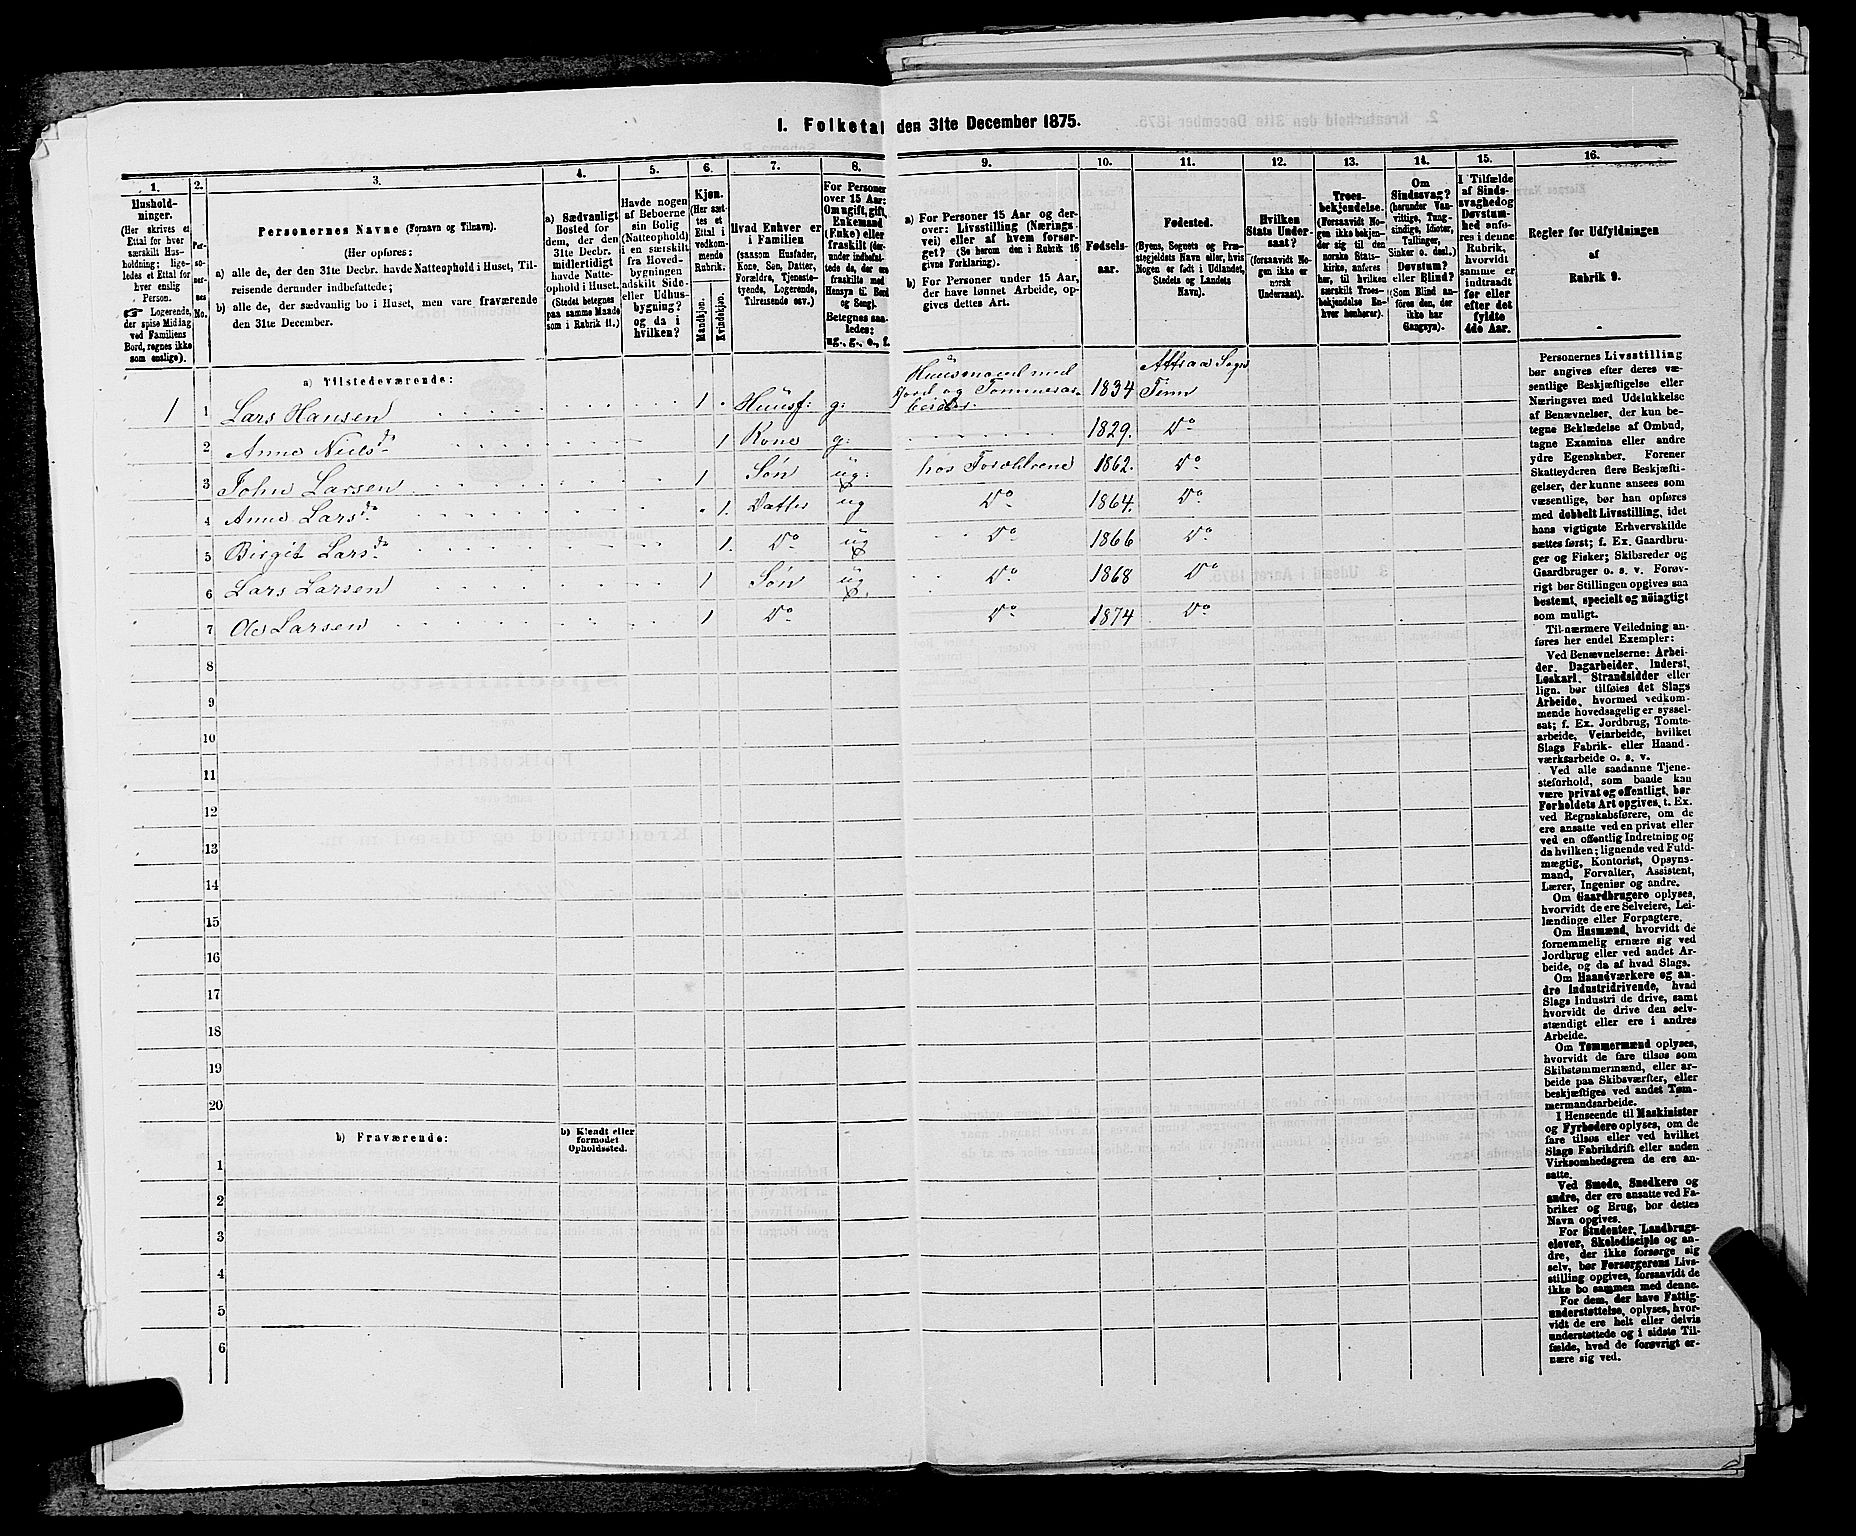 1. Folketal den 31te December 1875.
1.
2.
3.
4.
5.
6.
7.
8.
9.
10.
11.
12.
13.
14.
15.
16.
Hushold-
ninger.
(Her skrives et
Ettal for hver
særskilt Hus-
holdning; lige-
ledes et Ettal for
hver enslig
Person.
☛ Logerende,
der spise Middag
ved Familiens
Bord, regnes ikke
som enslige).
Per-
so-
ner-
nes
No.
Personernes Navne (Fornavn og Tilnavn).
(Her opføres:
a) alle de, der den 31te Decbr. havde Natteophold i Huset, Til-
reisende derunder indbefattede;
b) alle de, der sædvanlig bo i Huset, men vare fraværende
den 31te December.
a) Sædvanligt
Bosted for
dem, der den
31te Decbr.
midlertidigt
havde Natte-
ophold i Huset.
(Stedet betegnes
paa samme Maade
som i Rubrik 11.)
Havde nogen
af Beboerne
sin Bolig
(Natteophold)
i en særskilt
fra Hoved-
bygningen
adskilt Side-
eller Udhus-
bygning?
og da i
hvilken?
Kjøn.
(Her sæt-
tes et
Ettal i
vedkom-
mende
Rubrik.
Mandkjøn.
Kvindekjøn.
Hvad Enhver er
i Familien
(saasom Husfader,
Kone, Søn, Datter,
Forældre, Tjeneste-
tyende, Logerende,
Tilreisende osv.)
For Personer
over 15 Aar:
Om ugift, gift,
Enkemand
(Enke) eller
fraskilt (der-
under indbefat-
tede de, der ere
fraskilte med
Hensyn til Bord
og Seng).
Betegnes saa-
ledes:
ug., g., e., f.
a) For Personer 15 Aar og der-
over: Livsstilling (Nærings-
vei) eller af hvem forsør-
get? (Se herom den i Rubrik 16
givne Forklaring).
b) For Personer under 15 Aar,
der have lønnet Arbeide, op-
gives dettes Art.
Fødsels-
aar.
Fødested.
(Byens, Sognets og Præ-
stegjeldets Navn eller, hvis
Nogen er født i Udlandet,
Stedets og Landets
Navn).
Hvilken
Stats Under-
saat?
(forsaavidt No-
gen ikke er
norsk
Undersaat).
Troes-
bekjendelse.
(Forsaavidt No-
gen ikke bekjen-
der sig til den
norske Stats-
kirke, anføres
her, til hvilken
særskilt Troes-
bekjendelse En-
hver henhører).
Om
Sindssvag?
(herunder Van-
vittige, Tung-
sindige, Idioter,
Tullinger,
Sinker o. desl.)
Døvstum?
eller Blind?
(Som Blind an-
føres den, der
ikke har
Gangsyn).
I Tilfælde
af Sinds-
svaghed og
Døvstum-
hed anfø-
res i denne
Rubrik,
hvorvidt
samme er
indtraadt
før eller
efter det
fyldte
4de Aar.
Regler for Udfyldningen
af
Rubrik 9.
a) Tilstedeværende:
1 1 Lars Hansen 1 Huusf: g: Huusmand med Jord og Tømmerar-beider. 1834 Attraa Sogn Tinn
2 Anne Nielsd. 1 Kone g: 1829. Do
3 John Larsen 1 Søn ug: hos Forældrene 1862. Do
4 Anne Larsd. 1. Datter ug Do 1864. Do
5 Birgit Larsd. 1. Do ug Do 1866 Do
6 Lars Larsen 1 Søn ug. Do 1868 Do
7 Ole Larsen 1 Do Do 1874 Do
8
9
10
11
12
13
14
15
16
17
18
19
20
b) Fraværende:
b) Kjendt eller
formodet
Opholdssted.
1
2
3
4
5
6
Personernes Livsstilling
bør angives efter deres væ-
sentlige Beskjæftigelse eller
Næringsvei med Udelukkelse
af Benævnelser, der kun be-
tegne Beklædelse af Ombud,
tagne Examina eller andre
ydre Egenskaber. Forener
Skatteyderen flere Beskjæfti-
gelser, der kunne ansees som
væsentlige, bør han opføres
med dobbelt Livsstilling, idet
hans vigtigste Erhvervskilde
sættes først; f. Ex. Gaardbru-
ger og Fisker; Skibsreder og
Gaardbruger o. s. v. Forøv-
rigt bør Stillingen opgives saa
bestemt, specielt og nøiagtigt
som muligt.
Til nærmere Veiledning an-
føres her endel Exempler:
Ved Benævnelserne: Arbei-
der, Dagarbeider, Inderst,
Løskarl, Strandsidder eller
lign. bør tilføies det Slags
Arbeide, hvormed vedkom-
mende hovedsagelig er syssel-
sat; f. Ex. Jordbrug, Tomte-
arbeide, Veiarbeide, hvilket
Slags Fabrik- eller Haand-
værksarbeide o. s. v.
Ved alle saadanne Tjene-
steforhold, som baade kan
være privat og offentligt, bør
Forholdets Art opgives, t. Ex.
ved Regnskabsførere, om de
ere ansatte ved en privat eller
ved en offentlig Indretning og
da hvilken; lignende ved Fuld-
mægtig, Kontorist, Opsyns-
mand, Forvalter, Assistent,
Lærer, Ingeniør og andre.
Om Gaardbrugere oplyses,
hvorvidt de ere Selveiere, Lei-
lændinge eller Forpagtere.
Om Husmænd, hvorvidt de
fornemmelig ernære sig ved
Jordbrug eller ved andet Ar-
beide, og da af hvad Slags.
Om Haandværkere og an-
dre Industridrivende, hvad
Slags Industri de drive, samt
hvorvidt de drive den selv-
stændigt eller ere i andres
Arbeide.
Om Tømmermænd oplyses,
hvorvidt de fare tilsøs som
Skibstømmermænd, eller ar-
beide paa Skibsværfter, eller
beskjæftiges ved andet Tøm-
mermandsarbeide.
I Henseende til Maskinister
og Fyrbødere oplyses, om de
fare tilsøs eller ved hvilket
Slags Fabrikdrift eller anden
Virksomhedsgren de ere an-
satte.
Ved Smede, Snedkere og
andre, der ere ansatte ved Fa-
briker og Brug, bør dettes
Navn opgives.
For Studenter, Landbrugs-
elever, Skoledisciple og an-
dre, der ikke forsørge sig
selv, bør Forsørgerens Livs-
stilling opgives, forsaavidt de
ikke bo sammen med denne.
For dem, der have Fattig-
understøttelse, oplyses, hvor-
vidt de ere helt eller delvis
understøttede og i sidste Til-
fælde, hvad de forøvrigt er-
nære sig ved.